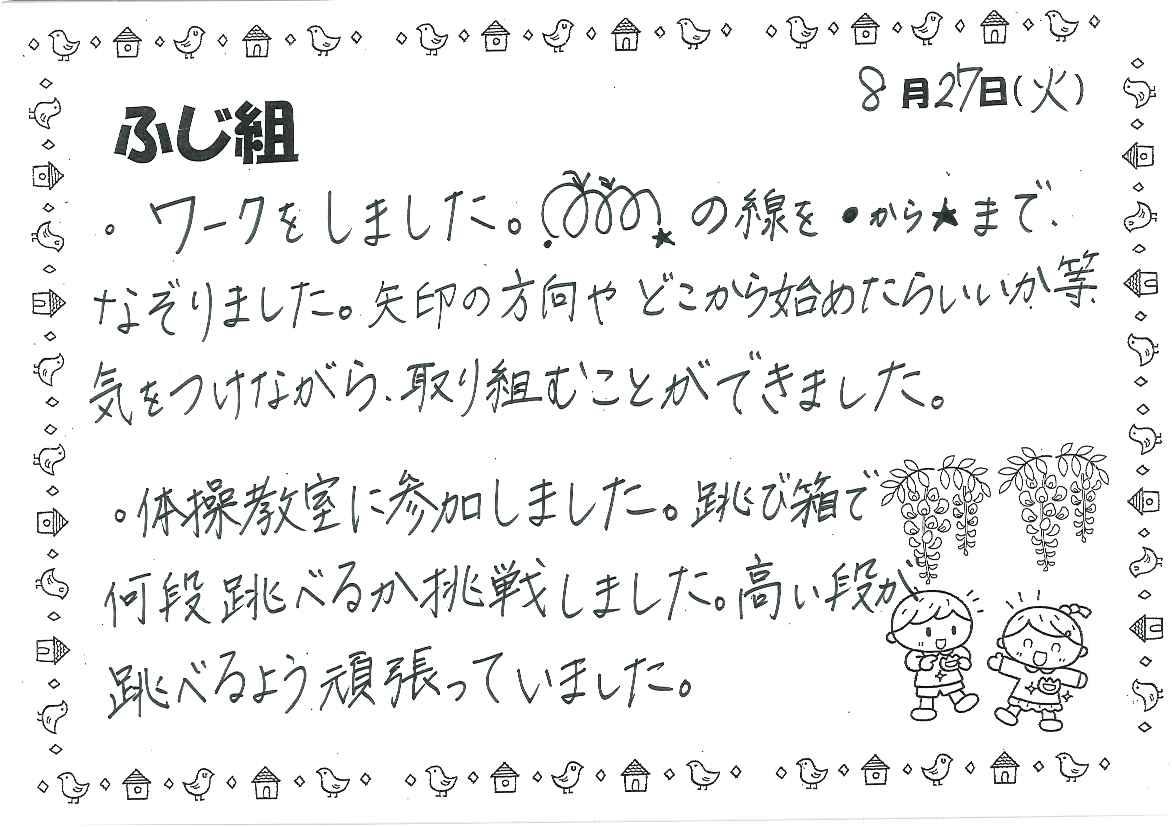 8月27日(火)
ふじ組
。ワークをしました。の線を●から★まで、
なぞりました。矢印の方向やどこから始めたらいいか等
気をつけながら、取り組むことができました。
。体操教室に参加しました。跳び箱で
何段跳べるか挑戦しました。高い段が
跳べるよう頑張っていました。